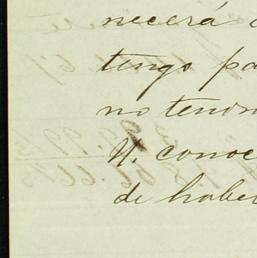 necerá
tengo pa
no tendr
V. conoc
de habe